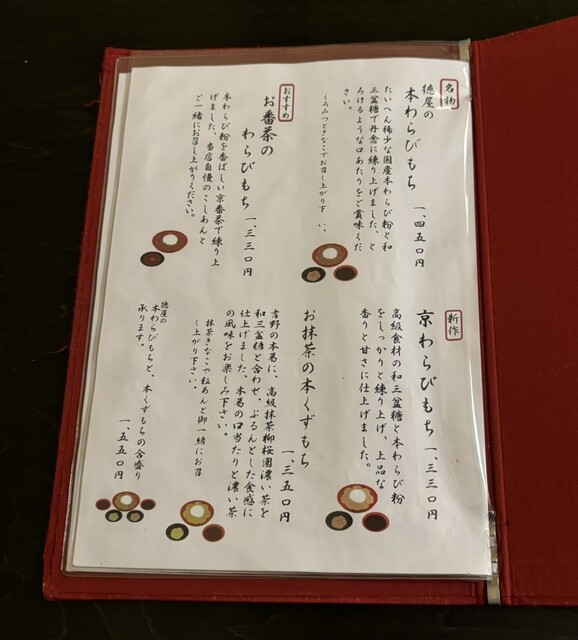 名物
徳屋の
本わらびもち 一、四五〇円
たいへん稀少な国産本わらび粉と和
三盆糖で丹念に練り上げました、と
ろけるような口あたりをご賞味くだ
さい。
くろみつときなこでお召し上がり下
おすすめ
お番茶の
わらびもち 一、三三〇円
本わらび粉を香ばしい京番茶で練り上
げました、当店自慢のこしあんと
ご一緒にお召し上がりください。
新作
京わらびもち 一、三三〇円
高級食材の和三盆糖と本わらび粉
をしっかりと練り上げ、上品な
香りと甘さに仕上げました。
お抹茶の本くずもち
一、三五〇円
吉野の本葛に、高級抹茶柳桜園濃い茶を
和三盆糖と合わせ、ぷるんとした食感に
仕上げました、本葛の口当たりと濃い茶
の風味をお楽しみ下さい。
抹茶きなこや粒あんと御一緒にお召
し上がり下さい。
徳屋の
本わらびもちと、本くずもちの合盛り
承ります。
一、五五〇円